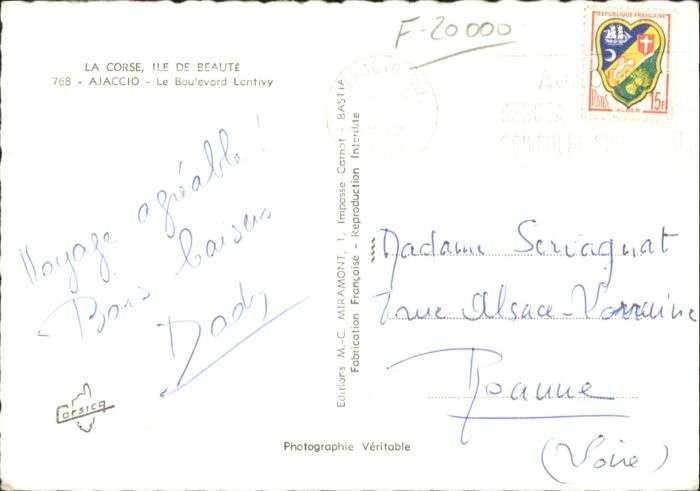 F-20 000
LA CORSE, ILE DE BEAUTÉ
768 - AJACCIO - Le Boulevard Lantivy
REPUBLIQUE FRANÇAISE
Postes 15F
ALGER
Voyage agréable !
Bons baisers
Dady
Corsica
Editions M.-C. MIRAMONT, 1, Impasse Carnot - BASTIA
Fabrication Française - Reproduction Interdite
Madame Seriagnat
rue Alsace-Lorraine
Roanne
(Loire)
Photographie Véritable